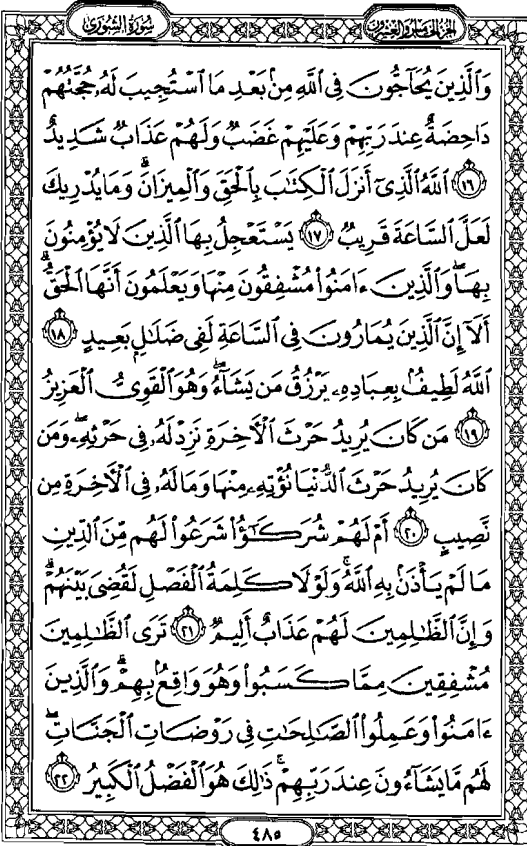 الجزء الخامس والعشرين
سورة الشورى
وَالَّذِينَ يُحَآجُّونَ فِى ٱللَّهِ مِنۢ بَعْدِ مَا ٱسْتُجِيبَ لَهُۥ حُجَّتُهُمْ
دَاحِضَةٌ عِندَ رَبِّهِمْ وَعَلَيْهِمْ غَضَبٌ وَلَهُمْ عَذَابٌ شَدِيدٌ
١٦ ٱللَّهُ ٱلَّذِىٓ أَنزَلَ ٱلْكِتَٰبَ بِٱلْحَقِّ وَٱلْمِيزَانَ ۗ وَمَا يُدْرِيكَ
لَعَلَّ ٱلسَّاعَةَ قَرِيبٌ ١٧ يَسْتَعْجِلُ بِهَا ٱلَّذِينَ لَا يُؤْمِنُونَ
بِهَا ۖ وَٱلَّذِينَ ءَامَنُوا۟ مُشْفِقُونَ مِنْهَا وَيَعْلَمُونَ أَنَّهَا ٱلْحَقُّ ۗ
أَلَآ إِنَّ ٱلَّذِينَ يُمَارُونَ فِى ٱلسَّاعَةِ لَفِى ضَلَٰلٍۭ بَعِيدٍ ١٨
ٱللَّهُ لَطِيفٌۢ بِعِبَادِهِۦ يَرْزُقُ مَن يَشَآءُ ۖ وَهُوَ ٱلْقَوِىُّ ٱلْعَزِيزُ
١٩ مَن كَانَ يُرِيدُ حَرْثَ ٱلْءَاخِرَةِ نَزِدْ لَهُۥ فِى حَرْثِهِۦ ۖ وَمَن
كَانَ يُرِيدُ حَرْثَ ٱلدُّنْيَا نُؤْتِهِۦ مِنْهَا وَمَا لَهُۥ فِى ٱلْءَاخِرَةِ مِن
نَّصِيبٍ ٢٠ أَمْ لَهُمْ شُرَكَٰٓؤُا۟ شَرَعُوا۟ لَهُم مِّنَ ٱلدِّينِ
مَا لَمْ يَأْذَنۢ بِهِ ٱللَّهُ ۚ وَلَوْلَا كَلِمَةُ ٱلْفَصْلِ لَقُضِىَ بَيْنَهُمْ ۗ
وَإِنَّ ٱلظَّٰلِمِينَ لَهُمْ عَذَابٌ أَلِيمٌ ٢١ تَرَى ٱلظَّٰلِمِينَ
مُشْفِقِينَ مِمَّا كَسَبُوا۟ وَهُوَ وَاقِعٌۢ بِهِمْ ۗ وَٱلَّذِينَ
ءَامَنُوا۟ وَعَمِلُوا۟ ٱلصَّٰلِحَٰتِ فِى رَوْضَاتِ ٱلْجَنَّاتِ ۖ
لَهُم مَّا يَشَآءُونَ عِندَ رَبِّهِمْ ۚ ذَٰلِكَ هُوَ ٱلْفَضْلُ ٱلْكَبِيرُ ٢٢
٤٨٥